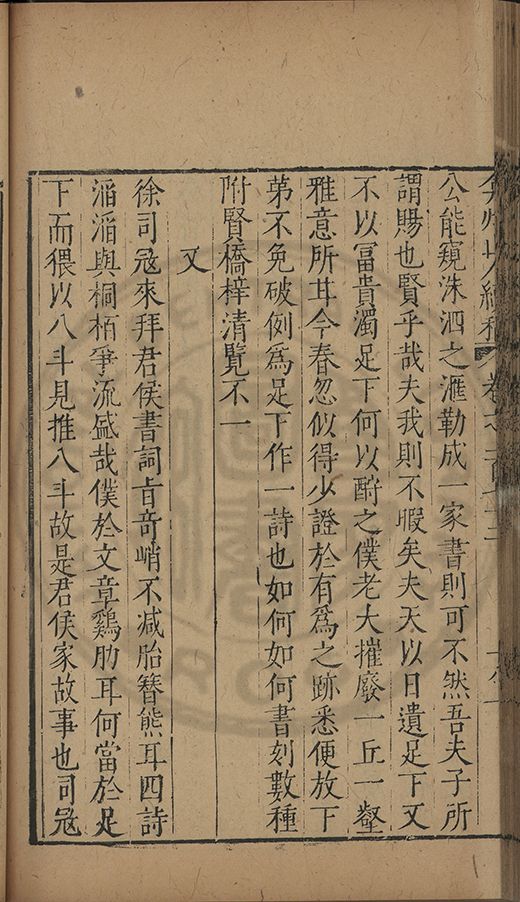 弇州山人續稿 卷之一百七十三
公能窺洙泗之滙勒成一家書則可不然吾夫子所
謂賜也賢乎哉夫我則不暇矣夫天以日遺足下又
不以冨貴濁足下何以酧之僕老大摧廢一丘一壑
雅意所耳今春忽似得少證於有爲之跡悉便放下
第不免破例爲足下作一詩也如何如何書刻數種
附賢橋梓清覽不一
又
徐司㓂來拜君侯書詞㫖竒峭不减胎簪熊耳四詩
滔滔與桐栢爭流盛哉僕於文章鷄肋耳何當於足
下而猥以八斗見推八斗故是君侯家故事也司㓂